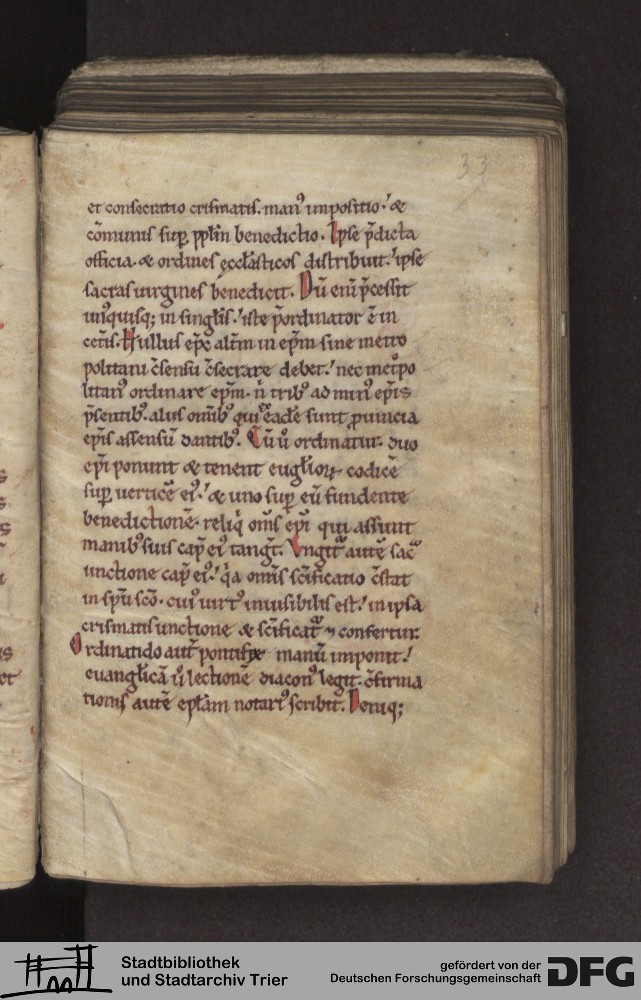 33
et consecratio crismatis. man⁹ inpositio.' &
cōmunis sup̱ pp̄lm benedictio. Ipse p̄dicta
officia. & ordines ęccl̄asticos distribuit.' ipse
sacras uirgines benedicit. Dū eni p̄cessit
un⁹quisq; in singl̄is.' iste p̄ordinator ē in
cet̄is. Nullus ep̄c alt̄m in ep̄m sine metro
politani c̄sensu c̄secrare debet.' nec met̊po
litan⁹ ordinare ep̄m. n̄ trib⁹ ad min⁹ ep̄is
p̄sentib⁹. aliis om̄ib⁹ qui eadē sunt ꝓuincia
ep̄is assensū dantib⁹. Cū ů ordinatur. duo
ep̄i ponunt & tenent eugl̄ioꝝ codicē
sup̱ uerticē ei⁹.' & uno sup̱ eū fundente
benedictionē. reliq̄ om̄s ep̄i qui assunt
manib⁹ suis cap̄ ei⁹ tangt̄. Ungit᷑ autē sac̄
unctione cap̄ ei⁹.' q̄a omīs sc̄ificatio c̄stat
in sp̄u sc̄o. cui⁹ uirt⁹ inuisibilis est.' in ipsa
crismatis unctione & sc̄ificat᷑ ⁊ confertur.
Ordinatido aut̄ pontifex manū imponit.'
euangl̄icā ů lectionē diacon⁹ legit. c̄firma
tionis autē epl̄am notari⁹ scribit. Deniq;
Stadtbibliothek
und Stadtarchiv Trier
gefördert von der
Deutschen Forschungsgemeinschaft
DFG